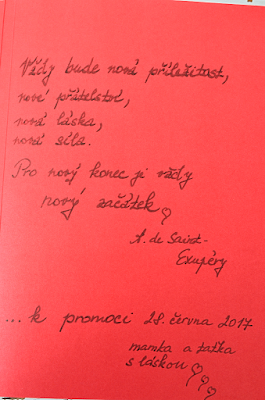 Vždy bude nová příležitost,
nové přátelství,
nová láska,
nová síla.
Pro nový konec je vždy
nový začátek
A. de Saint-
Exupéry
... k promoci 28. června 2017
mamka a taťka
s láskou